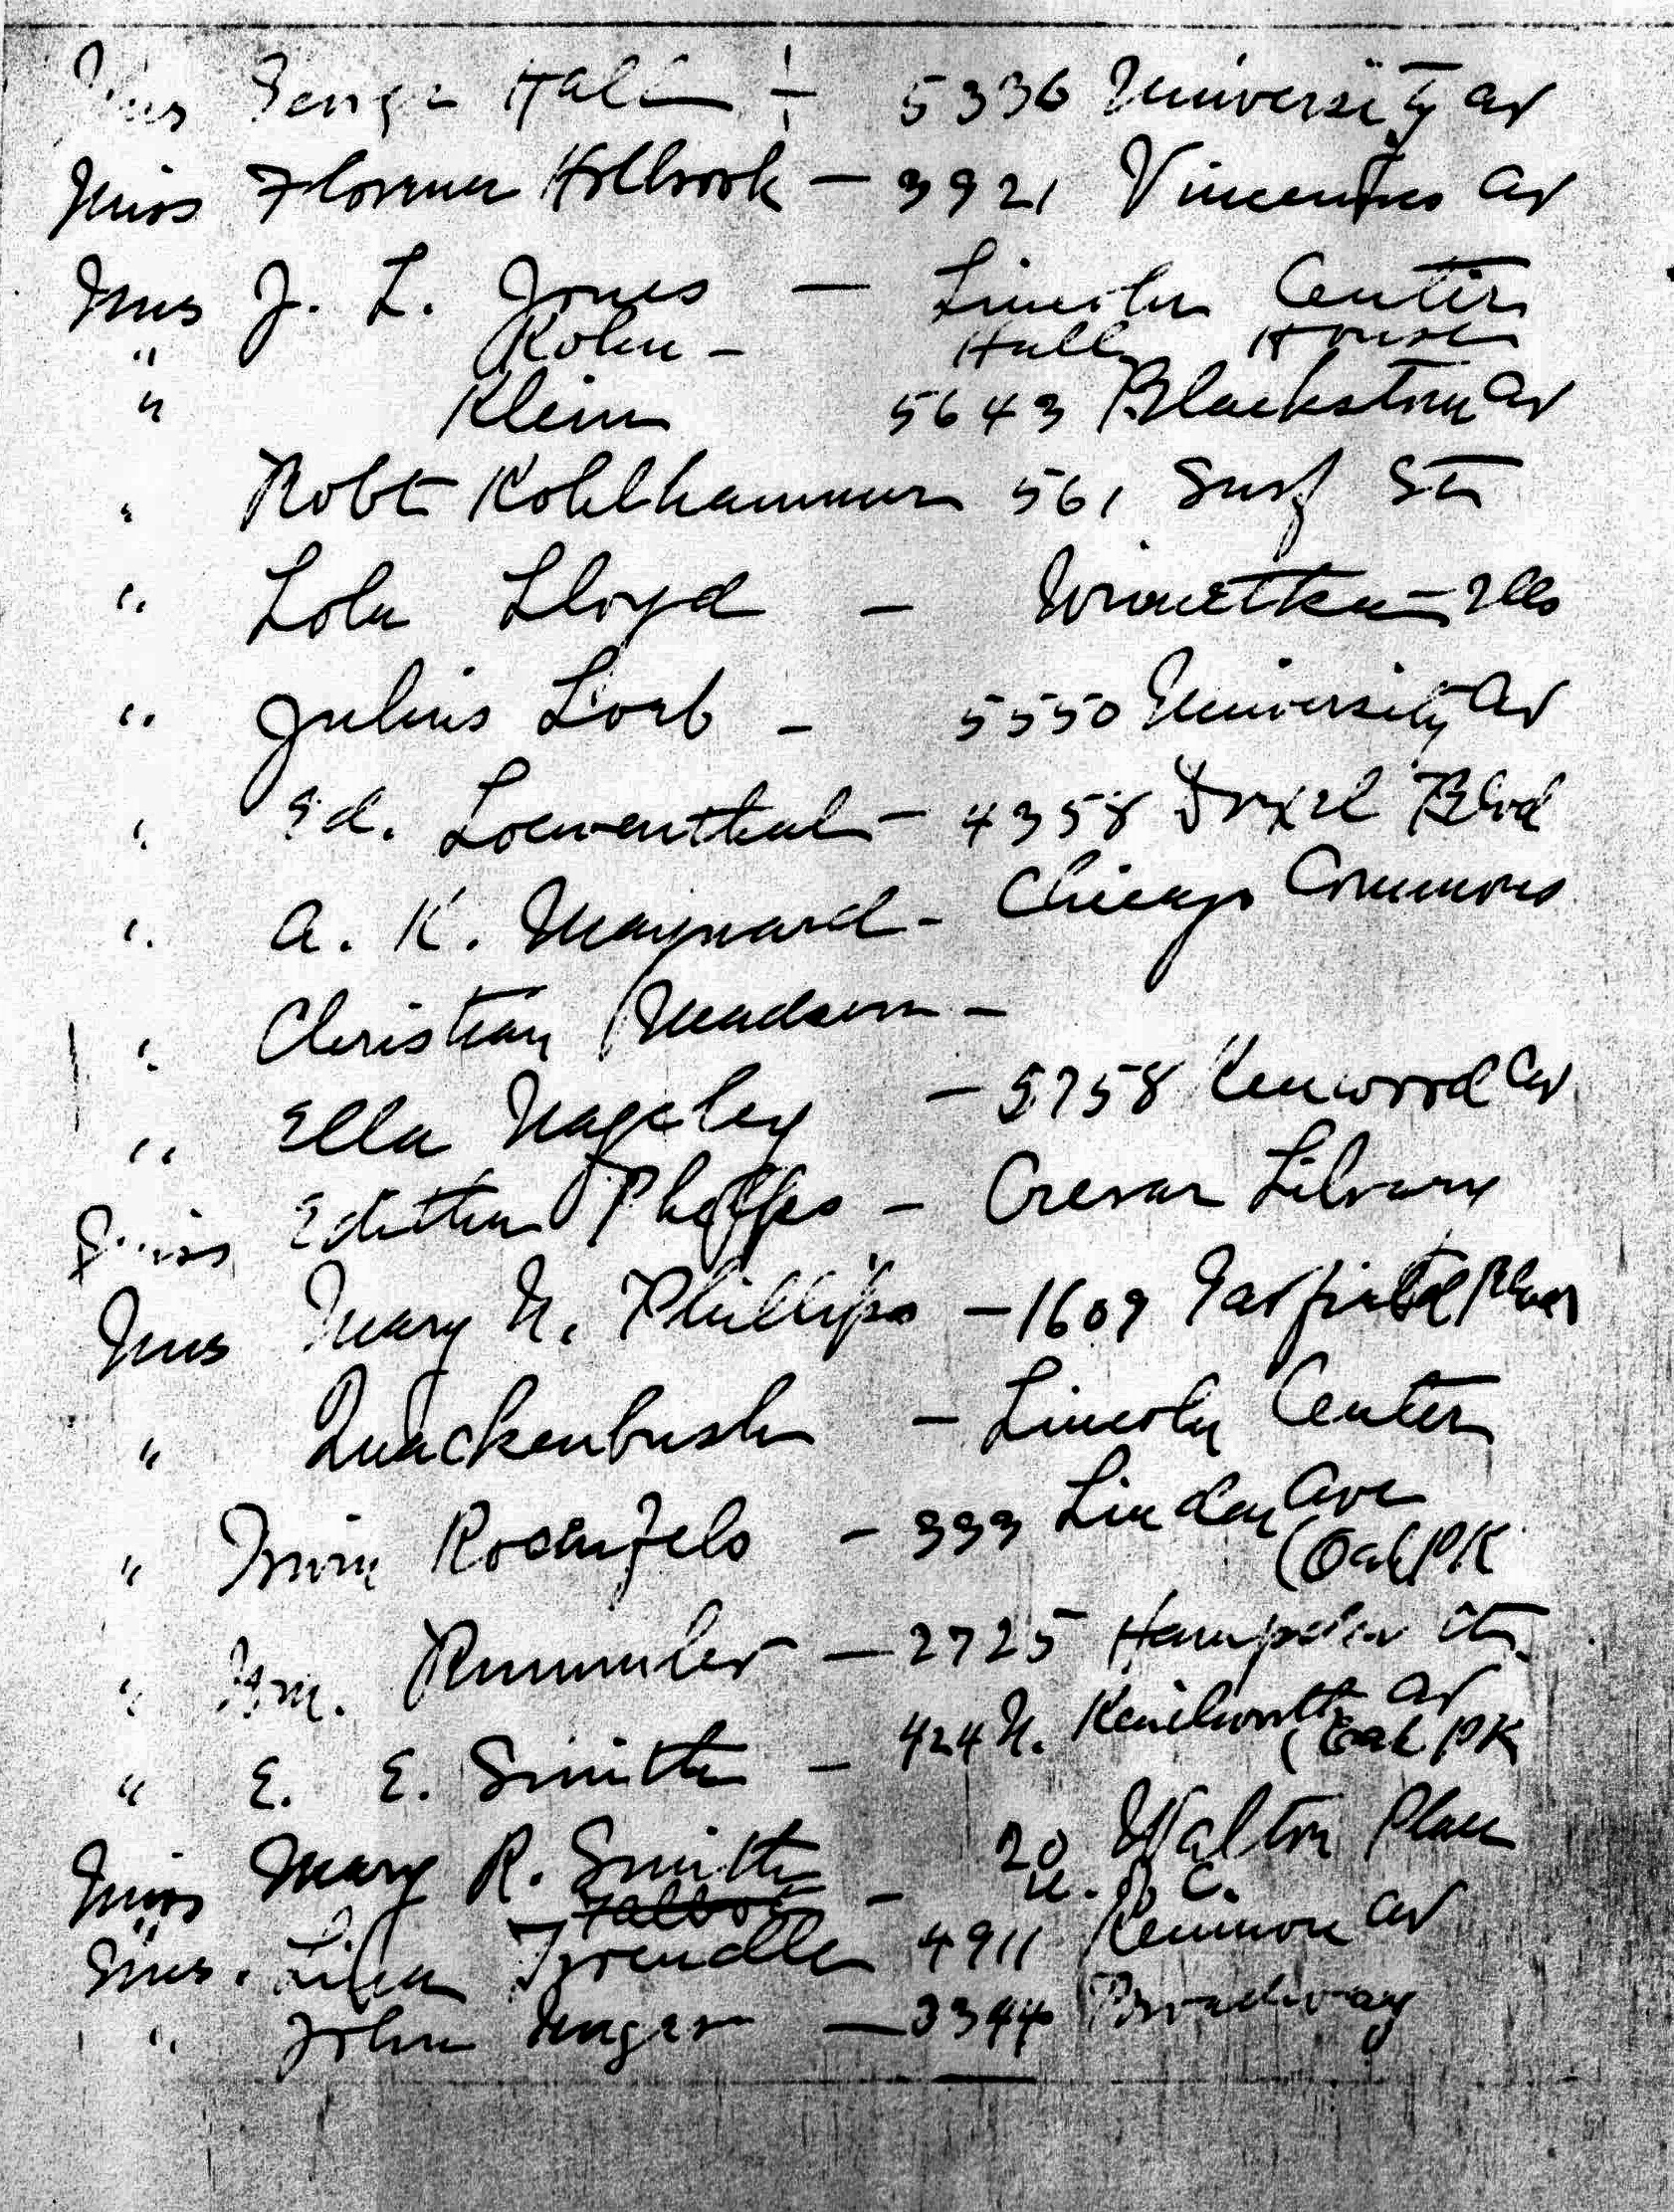 Mrs George Hall — 5336 University av
Miss Florence Holbrook — 3921 Vincennes av
Mrs J. L. Jones — Lincoln Center
" Kohn — Hull House
" Klein 5643 Blackstone av
" Robt Kohlhammer 561 Surf St
" Lola Lloyd — Winnetka — Ills
" Julius Loeb — 5550 University av
" Ed. Loewenthal — 4358 Drexel Blvd
" A. K. Maynard — Chicago Commons
" Christian Madsen —
" Ella Nageley — 5758 Kenwood av
Miss Edith Phelps — Crerar Library
Mrs Mary N. Phillips — 1609 Garfield Blvd
" Quackenbush — Lincoln Center
" Irvin Rosenfels — 333 Linden Ave
(Oak PK
" Wm. Rummler — 2725 Hampden Ct
" E. E. Smith — 424 N. Kenilworth av
(Oak PK
Miss Mary R. Smith — 20 Walton Place
" Talbot U. of C.
Mrs. Trendle 4911 Kenmore av
" John Unger — 3344 Broadway